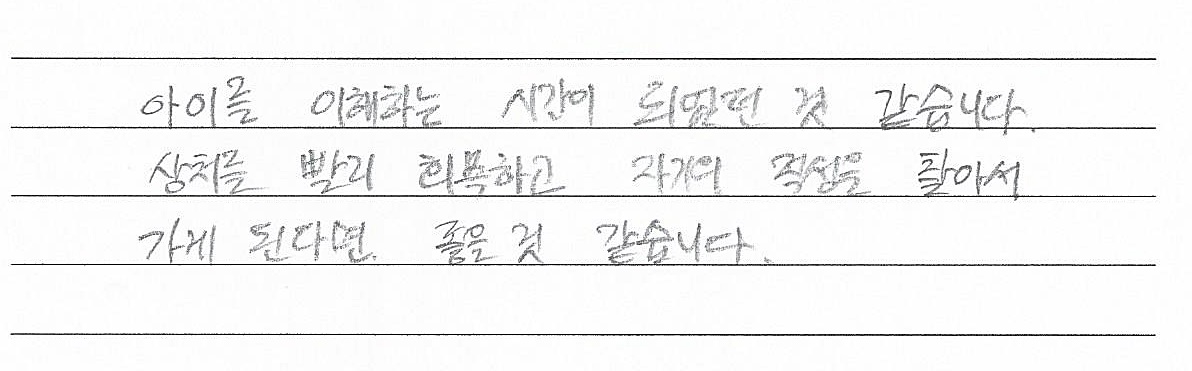 아이를 이해하는 시간이 되었던 것 같습니다.
상처를 빨리 회복하고 자기의 적성을 찾아서
가게 된다면. 좋은 것 같습니다.